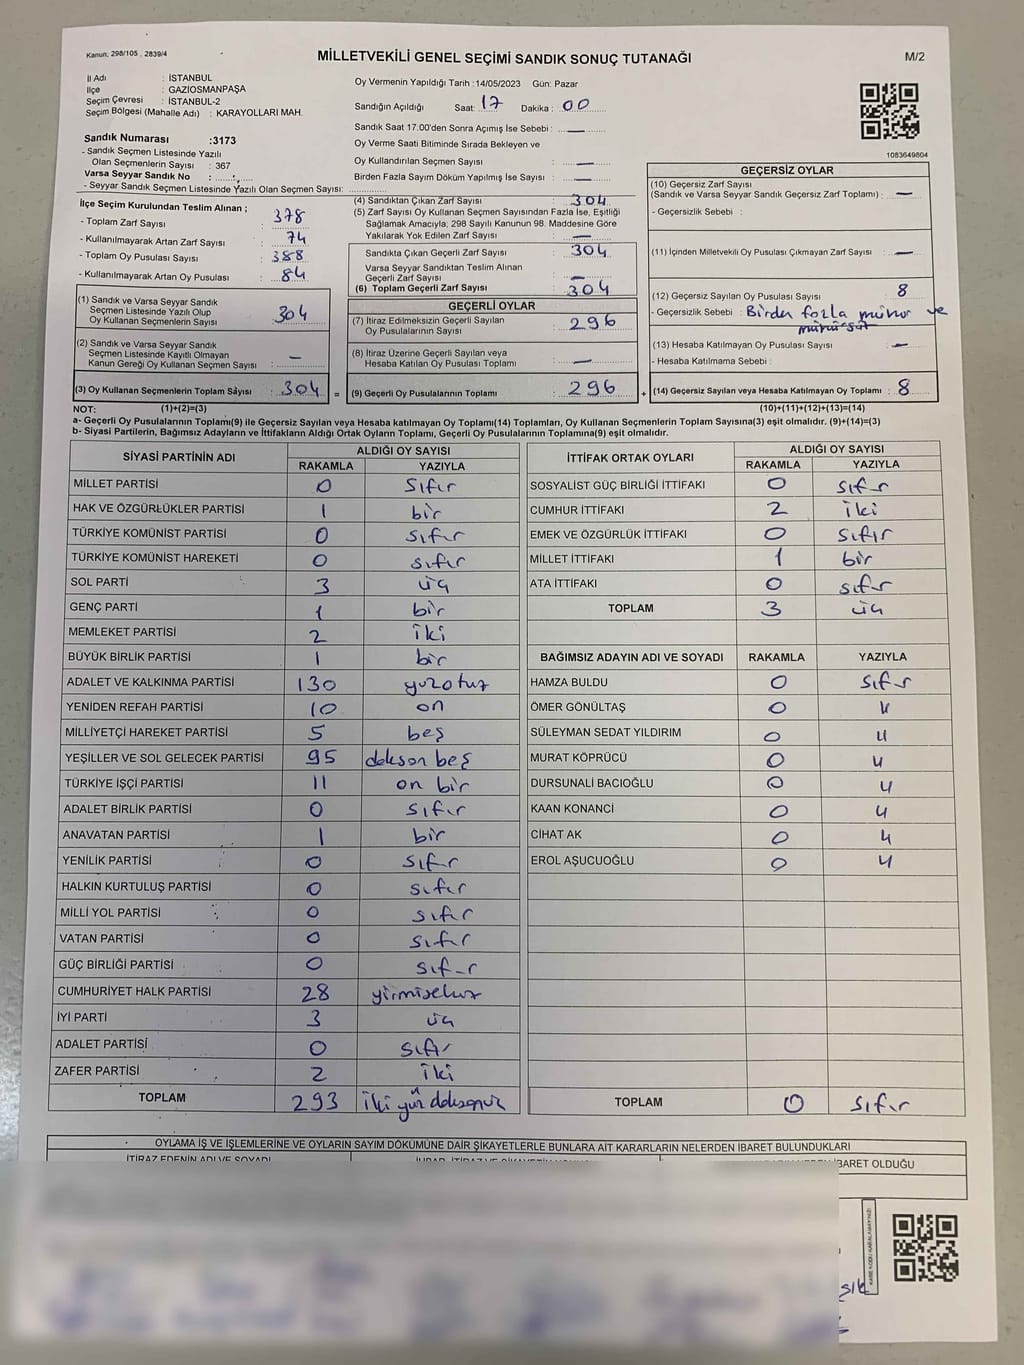 Kanun: 298/105 , 2839/4
MİLLETVEKİLİ GENEL SEÇİMİ SANDIK SONUÇ TUTANAĞI
M/2
İl Adı : İSTANBUL
İlçe : GAZİOSMANPAŞA
Seçim Çevresi : İSTANBUL-2
Seçim Bölgesi (Mahalle Adı) : KARAYOLLARI MAH.
Oy Vermenin Yapıldığı Tarih :14/05/2023 Gün: Pazar
Sandığın Açıldığı Saat: 17 Dakika : 00
Sandık Saat 17:00'den Sonra Açımış İse Sebebi : —
Oy Verme Saati Bitiminde Sırada Bekleyen ve
Oy Kullandırılan Seçmen Sayısı : —
Birden Fazla Sayım Döküm Yapılmış İse Sayısı : —
1083649804
Sandık Numarası :3173
- Sandık Seçmen Listesinde Yazılı
Olan Seçmenlerin Sayısı : 367
Varsa Seyyar Sandık No :
- Seyyar Sandık Seçmen Listesinde Yazılı Olan Seçmen Sayısı:
İlçe Seçim Kurulundan Teslim Alınan ;
- Toplam Zarf Sayısı : 378
- Kullanılmayarak Artan Zarf Sayısı : 74
- Toplam Oy Pusulası Sayısı : 388
- Kullanılmayarak Artan Oy Pusulası : 84
(1) Sandık ve Varsa Seyyar Sandık
Seçmen Listesinde Yazılı Olup
Oy Kullanan Seçmenlerin Sayısı : 304
(2) Sandık ve Varsa Seyyar Sandık
Seçmen Listesinde Kayıtlı Olmayan
Kanun Gereği Oy Kullanan Seçmen Sayısı : —
(3) Oy Kullanan Seçmenlerin Toplam Sayısı : 304 =
(4) Sandıktan Çıkan Zarf Sayısı : 304
(5) Zarf Sayısı Oy Kullanan Seçmen Sayısından Fazla İse, Eşitliği
Sağlamak Amacıyla; 298 Sayılı Kanunun 98. Maddesine Göre
Yakılarak Yok Edilen Zarf Sayısı : —
Sandıkta Çıkan Geçerli Zarf Sayısı : 304
Varsa Seyyar Sandıktan Teslim Alınan
Geçerli Zarf Sayısı : —
(6) Toplam Geçerli Zarf Sayısı : 304
GEÇERLİ OYLAR
(7) İtiraz Edilmeksizin Geçerli Sayılan
Oy Pusulalarının Sayısı : 296
(8) İtiraz Üzerine Geçerli Sayılan veya
Hesaba Katılan Oy Pusulası Toplamı : —
(9) Geçerli Oy Pusulalarının Toplamı : 296 +
GEÇERSİZ OYLAR
(10) Geçersiz Zarf Sayısı
(Sandık ve Varsa Seyyar Sandık Geçersiz Zarf Toplamı) : —
- Geçersizlik Sebebi :
(11) İçinden Milletvekili Oy Pusulası Çıkmayan Zarf Sayısı : —
(12) Geçersiz Sayılan Oy Pusulası Sayısı : 8
- Geçersizlik Sebebi : Birden fazla mühür ve
mühürsüz
(13) Hesaba Katılmayan Oy Pusulası Sayısı : —
- Hesaba Katılmama Sebebi :
(14) Geçersiz Sayılan veya Hesaba Katılmayan Oy Toplamı : 8
NOT: (1)+(2)=(3) (10)+(11)+(12)+(13)=(14)
a- Geçerli Oy Pusulalarının Toplamı(9) ile Geçersiz Sayılan veya Hesaba katılmayan Oy Toplamı(14) Toplamları, Oy Kullanan Seçmenlerin Toplam Sayısına(3) eşit olmalıdır. (9)+(14)=(3)
b- Siyasi Partilerin, Bağımsız Adayların ve İttifakların Aldığı Ortak Oyların Toplamı, Geçerli Oy Pusulalarının Toplamına(9) eşit olmalıdır.
SİYASİ PARTİNİN ADI ALDIĞI OY SAYISI
RAKAMLA YAZIYLA
MİLLET PARTİSİ 0 sıfır
HAK VE ÖZGÜRLÜKLER PARTİSİ 1 bir
TÜRKİYE KOMÜNİST PARTİSİ 0 sıfır
TÜRKİYE KOMÜNİST HAREKETİ 0 sıfır
SOL PARTİ 3 üç
GENÇ PARTİ 1 bir
MEMLEKET PARTİSİ 2 iki
BÜYÜK BİRLİK PARTİSİ 1 bir
ADALET VE KALKINMA PARTİSİ 130 yüzotuz
YENİDEN REFAH PARTİSİ 10 on
MİLLİYETÇİ HAREKET PARTİSİ 5 beş
YEŞİLLER VE SOL GELECEK PARTİSİ 95 doksan beş
TÜRKİYE İŞÇİ PARTİSİ 11 on bir
ADALET BİRLİK PARTİSİ 0 sıfır
ANAVATAN PARTİSİ 1 bir
YENİLİK PARTİSİ 0 sıfır
HALKIN KURTULUŞ PARTİSİ 0 sıfır
MİLLİ YOL PARTİSİ 0 sıfır
VATAN PARTİSİ 0 sıfır
GÜÇ BİRLİĞİ PARTİSİ 0 sıfır
CUMHURİYET HALK PARTİSİ 28 yirmisekiz
İYİ PARTİ 3 üç
ADALET PARTİSİ 0 sıfır
ZAFER PARTİSİ 2 iki
TOPLAM 293 iki yüz doksanüç
İTTİFAK ORTAK OYLARI ALDIĞI OY SAYISI
RAKAMLA YAZIYLA
SOSYALİST GÜÇ BİRLİĞİ İTTİFAKI 0 sıfır
CUMHUR İTTİFAKI 2 iki
EMEK VE ÖZGÜRLÜK İTTİFAKI 0 sıfır
MİLLET İTTİFAKI 1 bir
ATA İTTİFAKI 0 sıfır
TOPLAM 3 üç
BAĞIMSIZ ADAYIN ADI VE SOYADI RAKAMLA YAZIYLA
HAMZA BULDU 0 sıfır
ÖMER GÖNÜLTAŞ 0 "
SÜLEYMAN SEDAT YILDIRIM 0 "
MURAT KÖPRÜCÜ 0 "
DURSUNALİ BACIOĞLU 0 "
KAAN KONANCİ 0 "
CİHAT AK 0 "
EROL AŞUCUOĞLU 0 "
TOPLAM 0 sıfır
OYLAMA İŞ VE İŞLEMLERİNE VE OYLARIN SAYIM DÖKÜMÜNE DAİR ŞİKAYETLERLE BUNLARA AİT KARARLARIN NELERDEN İBARET BULUNDUKLARI
İTİRAZ EDENİN ADI VE SOYADI
İBARET OLDUĞU